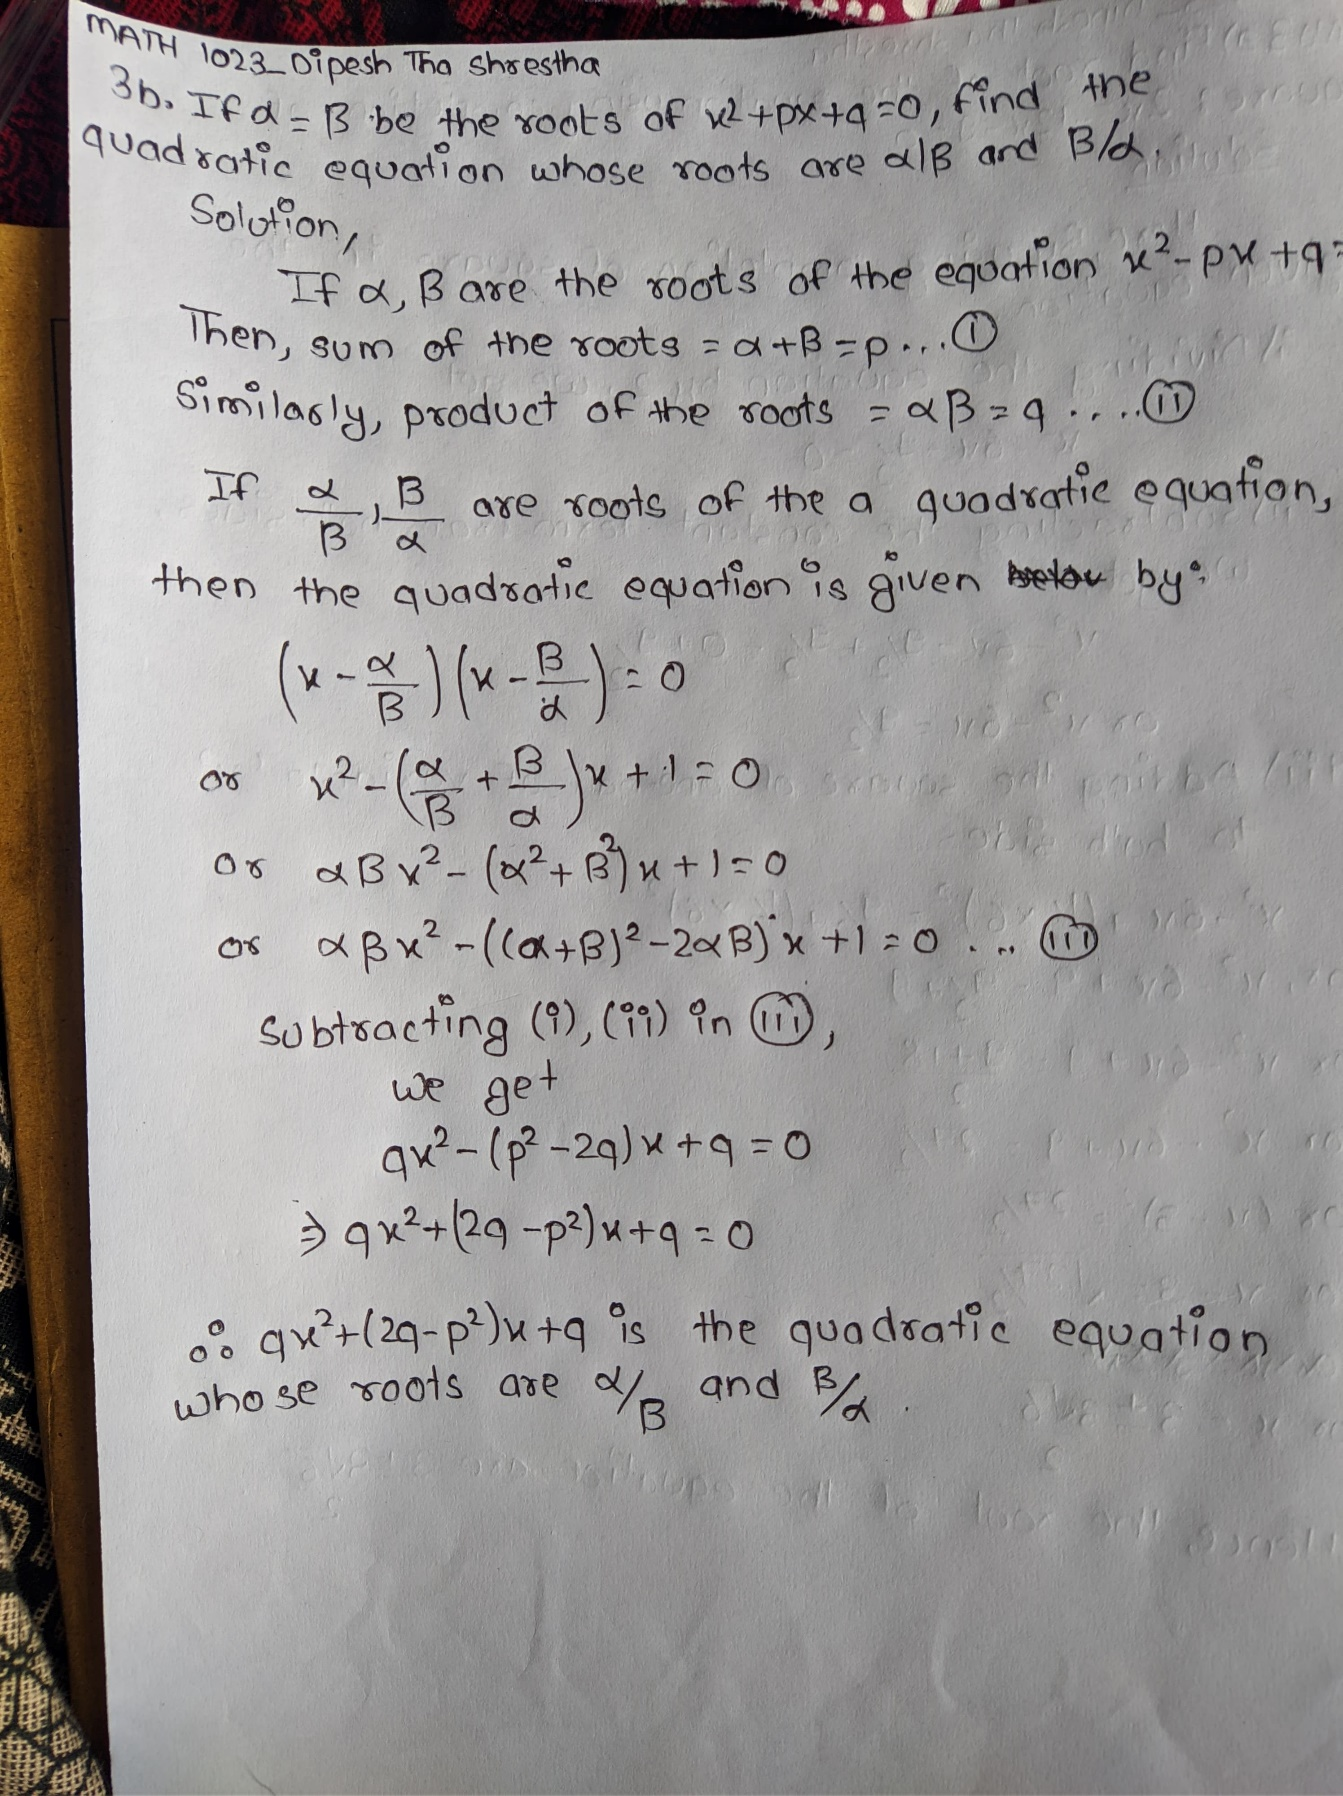 MATH 1023_Dipesh Tha Shrestha
3b. If α = β be the roots of x²+px+q=0, find the
quadratic equation whose roots are α/β and β/α.
Solution,
If α, β are the roots of the equation x²-px+q=
Then, sum of the roots = α+β=p...(i)
Similarly, product of the roots = αβ=q .....(ii)
If α/β, β/α are roots of the a quadratic equation,
then the quadratic equation is given below by:
(x-α/β)(x-β/α)=0
or x²-(α/β+β/α)x+1=0
or αβx²-(α²+β²)x+1=0
or αβx²-((α+β)²-2αβ)x+1=0 .... (iii)
Subtracting (i), (ii) in (iii),
we get
qx²-(p²-2q)x+q=0
⇒ qx²+(2q-p²)x+q=0
∴ qx²+(2q-p²)x+q is the quadratic equation
whose roots are α/β and β/α.